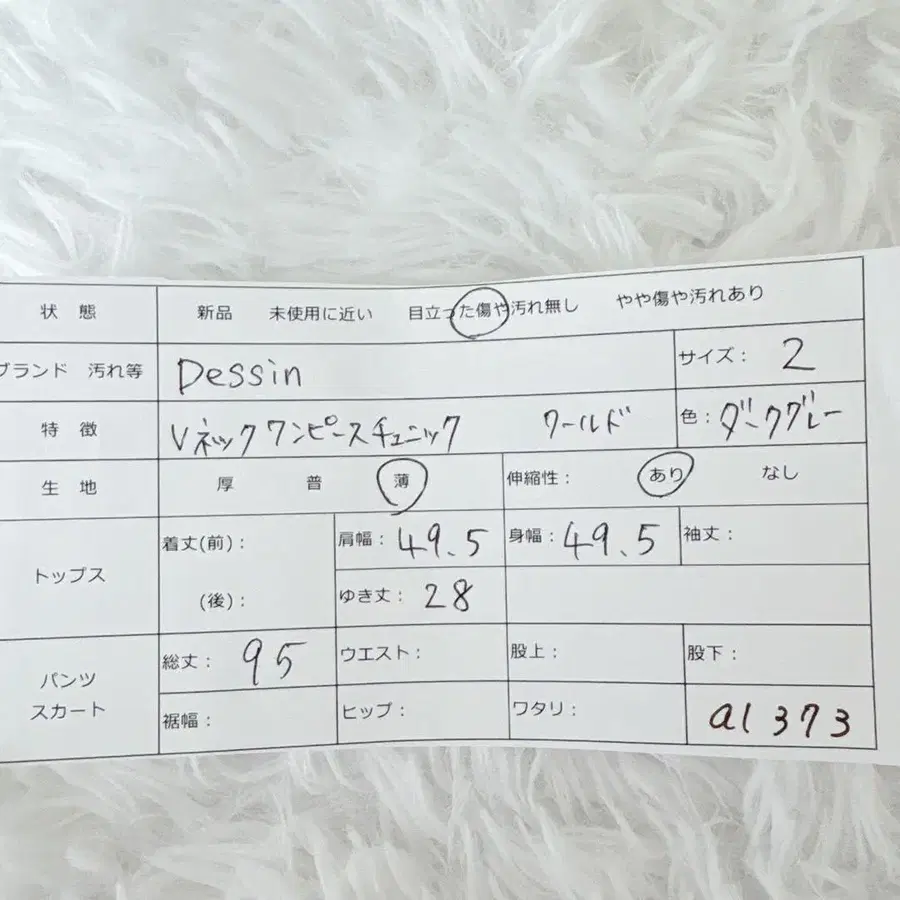 状 態 新品 未使用に近い 目立った傷や汚れ無し やや傷や汚れあり
ブランド 汚れ等 Dessin サイズ: 2
特 徴 Vネックワンピースチュニック ワールド 色: ダークグレー
生 地 厚 普 薄 伸縮性: あり なし
トップス 着丈(前): 肩幅: 49.5 身幅: 49.5 袖丈:
(後): ゆき丈: 28
パンツ 総丈: 95 ウエスト: 股上: 股下:
スカート 裾幅: ヒップ: ワタリ: a1373